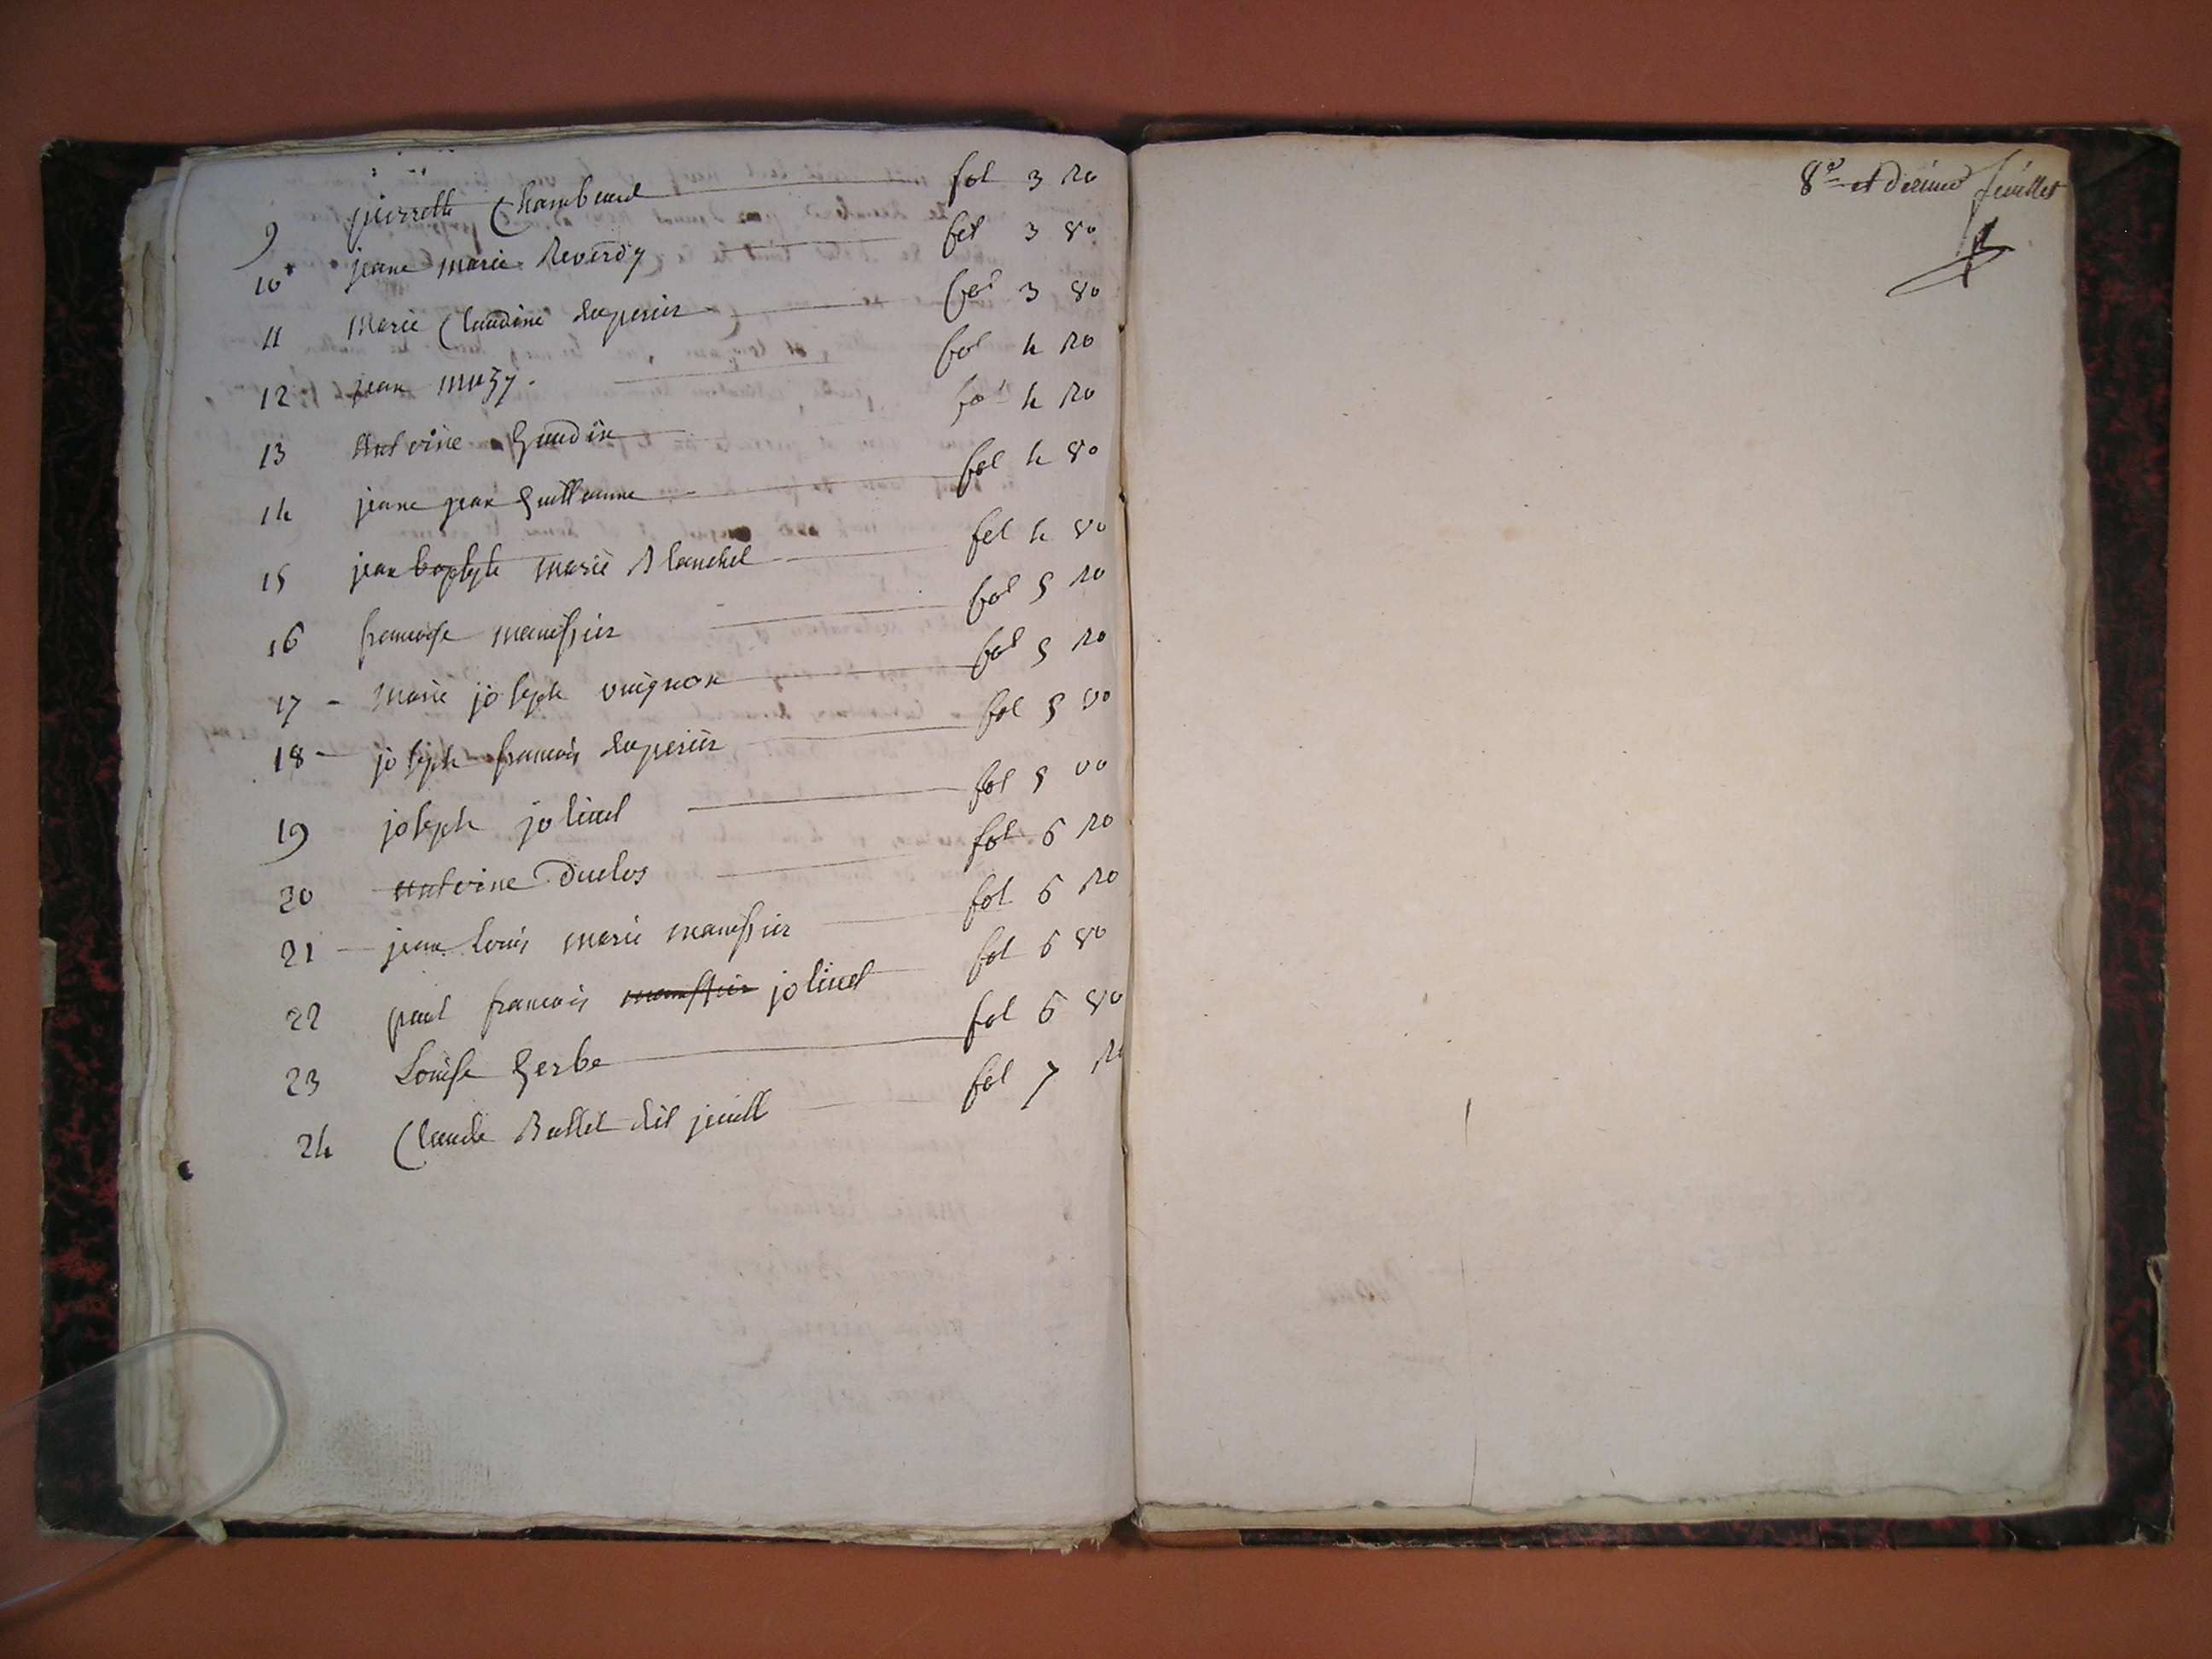 9 pierrette Chambaud fol 3 Ro
10 jeane marie Reverdy fol 3 vo
11 Marie Claudine duperier fol 3 vo
12 jean muzy. fol 4 Ro
13 Antoine Gaudin fol 4 Ro
14 jeane jean Guilleaume fol 4 vo
15 jean baptyste marie Blanchet fol 4 vo
16 francoise manissier fol 5 Ro
17 - Marie joseph vuignon fol 5 Ro
18 - joseph francois duperier fol 5 vo
19 joseph jolivet fol 5 vo
20 antoine Duclos fol 6 Ro
21 - jean Louis marie manissier fol 6 Ro
22 paul francois manissier jolivet fol 6 vo
23 Louise Gerbe fol 6 vo
24 Claude Bullet dit fol 7 Ro
8e et dernier feuillet